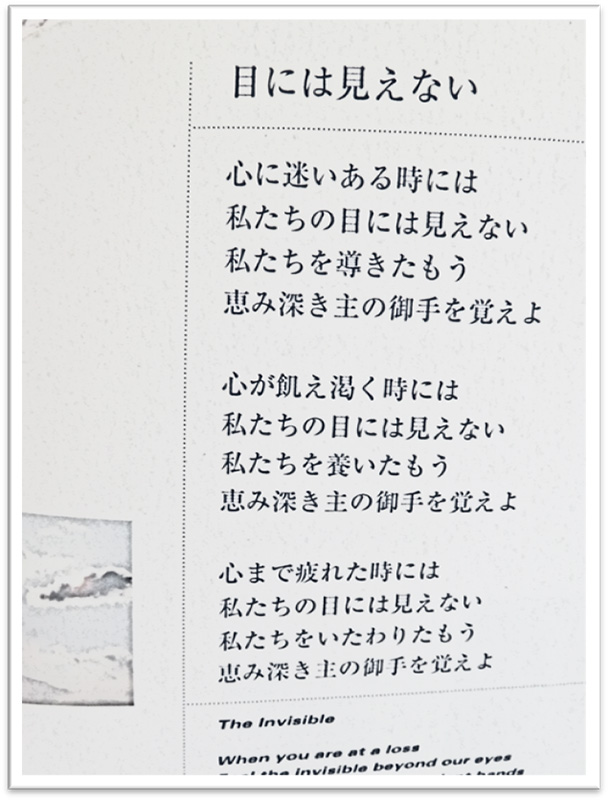 目には見えない
心に迷いある時には
私たちの目には見えない
私たちを導きたもう
恵み深き主の御手を覚えよ
心が飢え渇く時には
私たちの目には見えない
私たちを養いたもう
恵み深き主の御手を覚えよ
心まで疲れた時には
私たちの目には見えない
私たちをいたわりたもう
恵み深き主の御手を覚えよ
The Invisible
When you are at a loss
the invisible beyond our eyes
hands